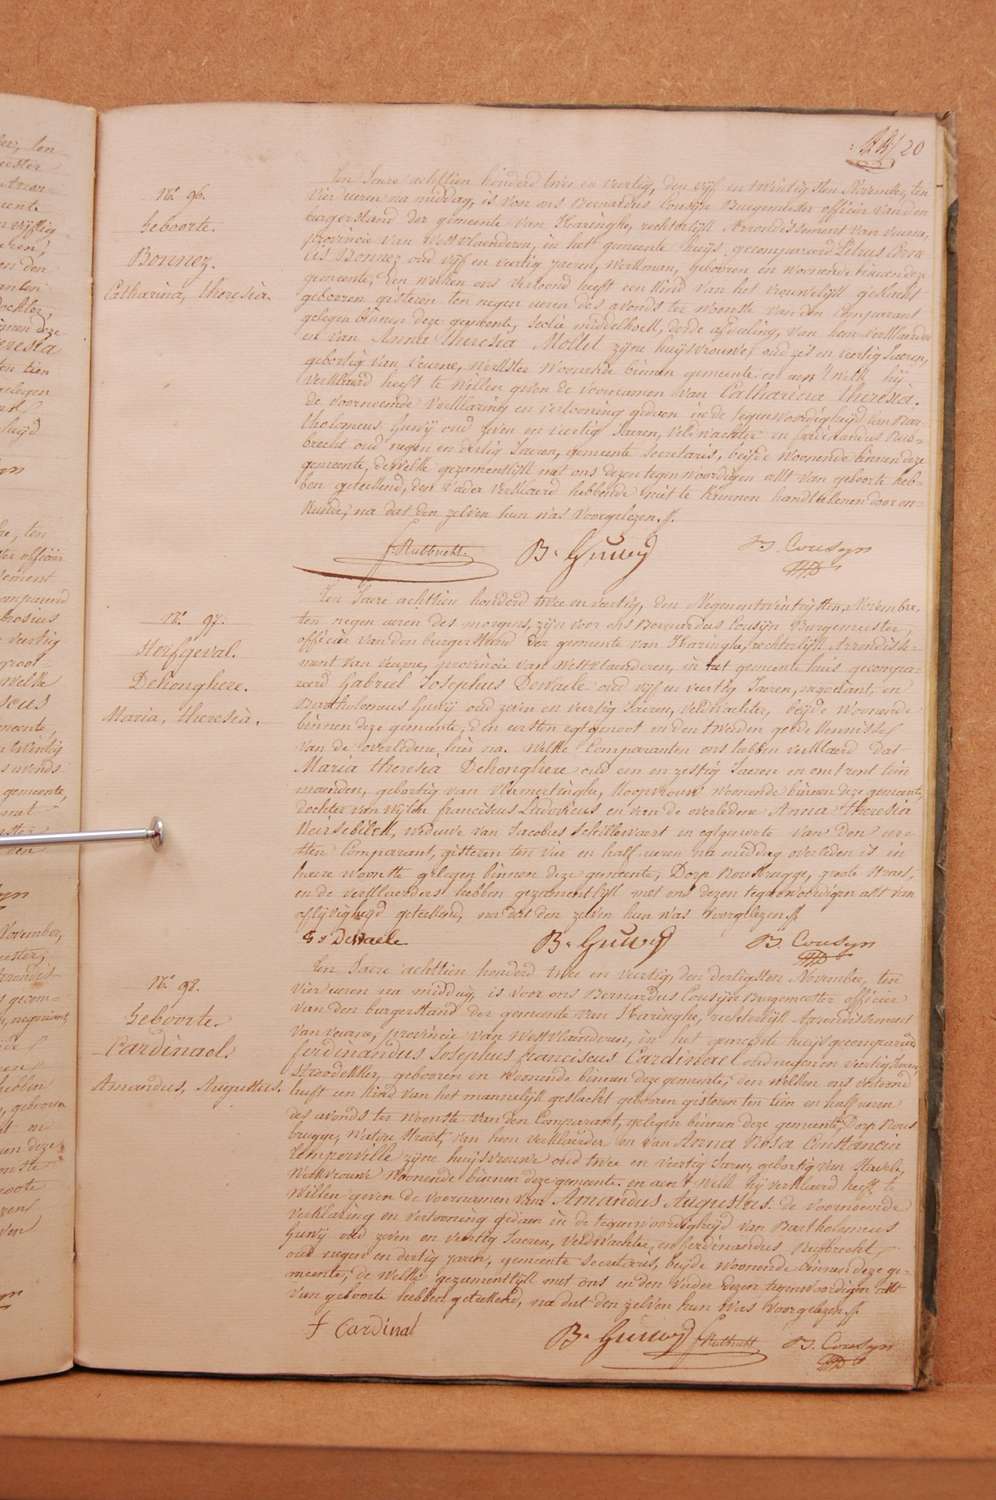 20
N.º 96.
Geboorte.
Bonnez.
Catharina, theresia.
Ten Jaere achttien honderd twee en veertig, den vijf en twintigsten November, ten
vier ueren na middag, is voor ons Bernardus Cousijn Burgemeester officier van den
burgerstand der gemeente van Haringhe, rechterlijk Arrondissement van veurne,
provincie van Westvlaenderen, in het gemeente huijs gecompareerd Petrus
Bonnez oud vijf en veertig jaeren, werkman, gebooren en woonende binnen deze
gemeente, Den welken ons vertoond heeft een kind van het vrouwelijk geslacht
gebooren gisteren ten negen ueren des avonds ter woonste van den Comparant
gelegen binnen deze gemeente, Sectie middelhoek, derde afdaling, van hem verklaerder
en van Anna Theresia Mollet zijne huijsvrouwe, oud zes en veertig Jaeren,
gebortig van Veurne, werkster woonende binnen gemeente en aen 't welk hij
verklaerd heeft te willen geven de voornamen van Catharina theresia.
de voornoemde verklaering en vertooning gedaen in de tegenwoordigheijd van Bar-
tholomeus Guwij oud zeven en veertig Jaeren, veldwachter en ferdinandus Rub-
brecht oud negen en dertig Jaeren, gemeente secretaris, beijde woonende binnen deze
gemeente, dewelke gezamentlijk met ons dezen tegenwoordigen akt van geboorte heb-
ben geteekend, den vader verklaerd hebbende niet te kunnen handteekenen door on-
kunde, na dat den zelven hun was voorgelezen.
f. Rubbrecht. B. Guwij B. Cousyn
N.º 97.
Sterfgeval.
Dehonghere.
Maria, theresia.
Ten Jaere achttien honderd twee en veertig, den Negenentwintigsten November,
ten negen ueren des morgens, zijn voor ons Bernardus Cousijn Burgemeester,
officier van den burgerstand der gemeente van Haringhe, rechterlijk Arrondisse-
ment van veurne, provincie van Westvlaenderen, in het gemeente huis gecompa-
reerd Gabriel Josephus Dewaele oud vijf en veertig Jaeren, negociant, en
Bartholomeus Guwij oud zeven en veertig Jaeren, veldwachter, beijde woonende
binnen deze gemeente, den eersten egtgenoot en den tweeden goede kennisse
van de overledene, hier na. Welke Comparanten ons hebben verklaerd dat
Maria theresia Dehonghere oud een en zestig Jaeren en omtrent tien
maenden, gebortig van Vlamertinghe, koopvrouw woonende binnen deze gemeente,
dochter van wijlen franciscus Ludovicus en van de overledene Anna theresia
weduwe van Jacobus en egtgenote van den eer-
sten Comparant, gisteren ten vier en half ueren na middag overleden is in
haere woonste gelegen binnen deze gemeente, Dorp Rousbrugge, groote straet,
en de verklaerders hebben gezamentlijk met ons dezen tegenwoordigen akt van
aflijvigheijd geteekend, na dat den zelven hun was voorgelezen.
G. J. Dewaele B. Guwij B. Cousyn
N.º 98.
Geboorte.
Cardinael.
Amandus, Augustus.
Ten Jaere achttien honderd twee en veertig, den dertigsten November, ten
vier ueren na middag, is voor ons Bernardus Cousijn Burgemeester officier
van den burgerstand der gemeente van Haringhe, rechterlijk Arrondissement
van veurne, provincie van Westvlaenderen, in het gemeente huijs gecompareerd
ferdinandus Josephus franciscus Cardinael oud negen en veertig Jaeren,
Stroodekker, gebooren en woonende binnen deze gemeente, den welken ons vertoond
heeft een kind van het mannelijk geslacht gebooren gisteren ten tien en half ueren
des avonds ter woonste van den Comparant, gelegen binnen deze gemeente Dorp Rous
brugge, Watere straet, van hem verklaerder en van Anna Rosa Constancia
Temperville zijne huijsvrouwe oud twee en veertig Jaeren, gebortig van Stavele,
Werkvrouwe woonende binnen deze gemeente. en aen 't welk hij verklaerd heeft te
willen geven de voornamen van Amandus Augustus. de voornoemde
verklaring en vertooning gedaen in de tegenwoordigheijd van Bartholomeus
Guwij oud zeven en veertig Jaeren, veldwachter, en ferdinandus Rubbrecht
oud negen en dertig jaeren, gemeente secretaris, beijde woonende binnen deze ge-
meente, de welke gezamentlijk met ons en den Vader dezen tegenwoordigen akt
van geboorte hebben geteekend, na dat den zelven hun was voorgelezen.
f Cardinal B. Guwij f. Rubbrecht. B. Cousyn